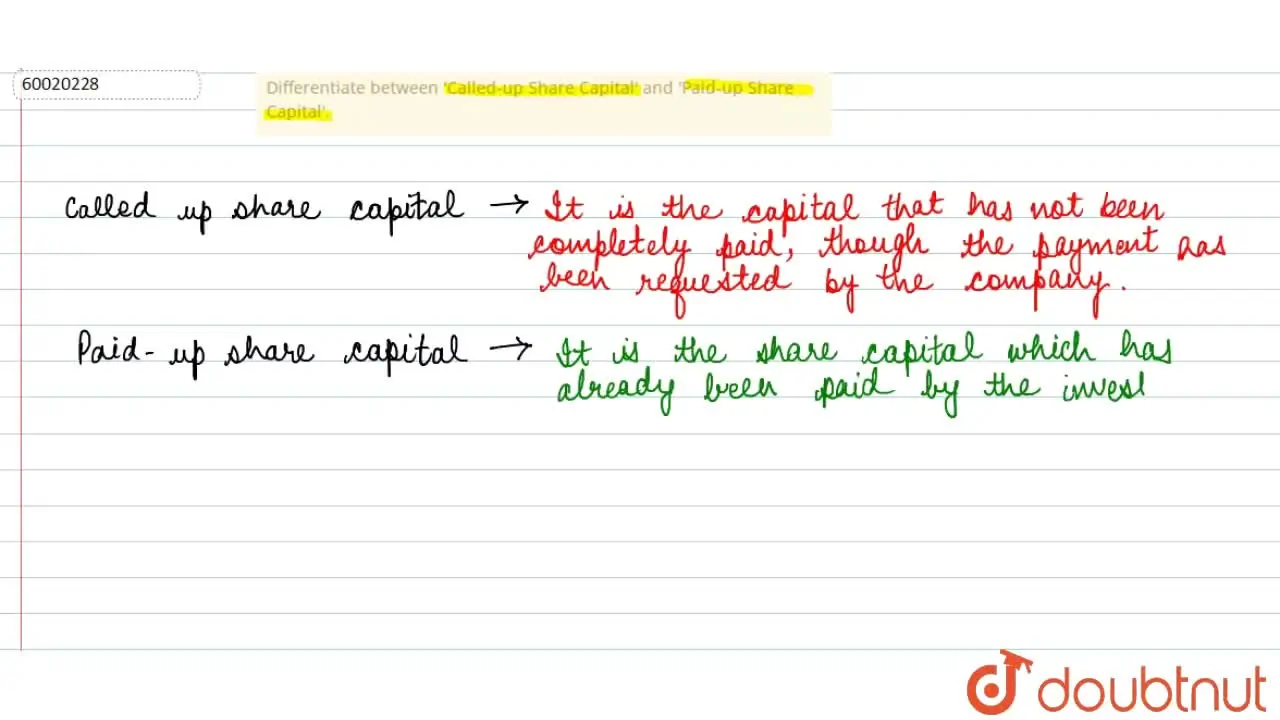 60020228
Differentiate between 'Called-up Share Capital' and 'Paid-up Share
Capital'.
Called up share capital → It is the capital that has not been
completely paid, though the payment has
been requested by the company.
Paid-up share capital → It is the share capital which has
already been paid by the invest
doubtnut